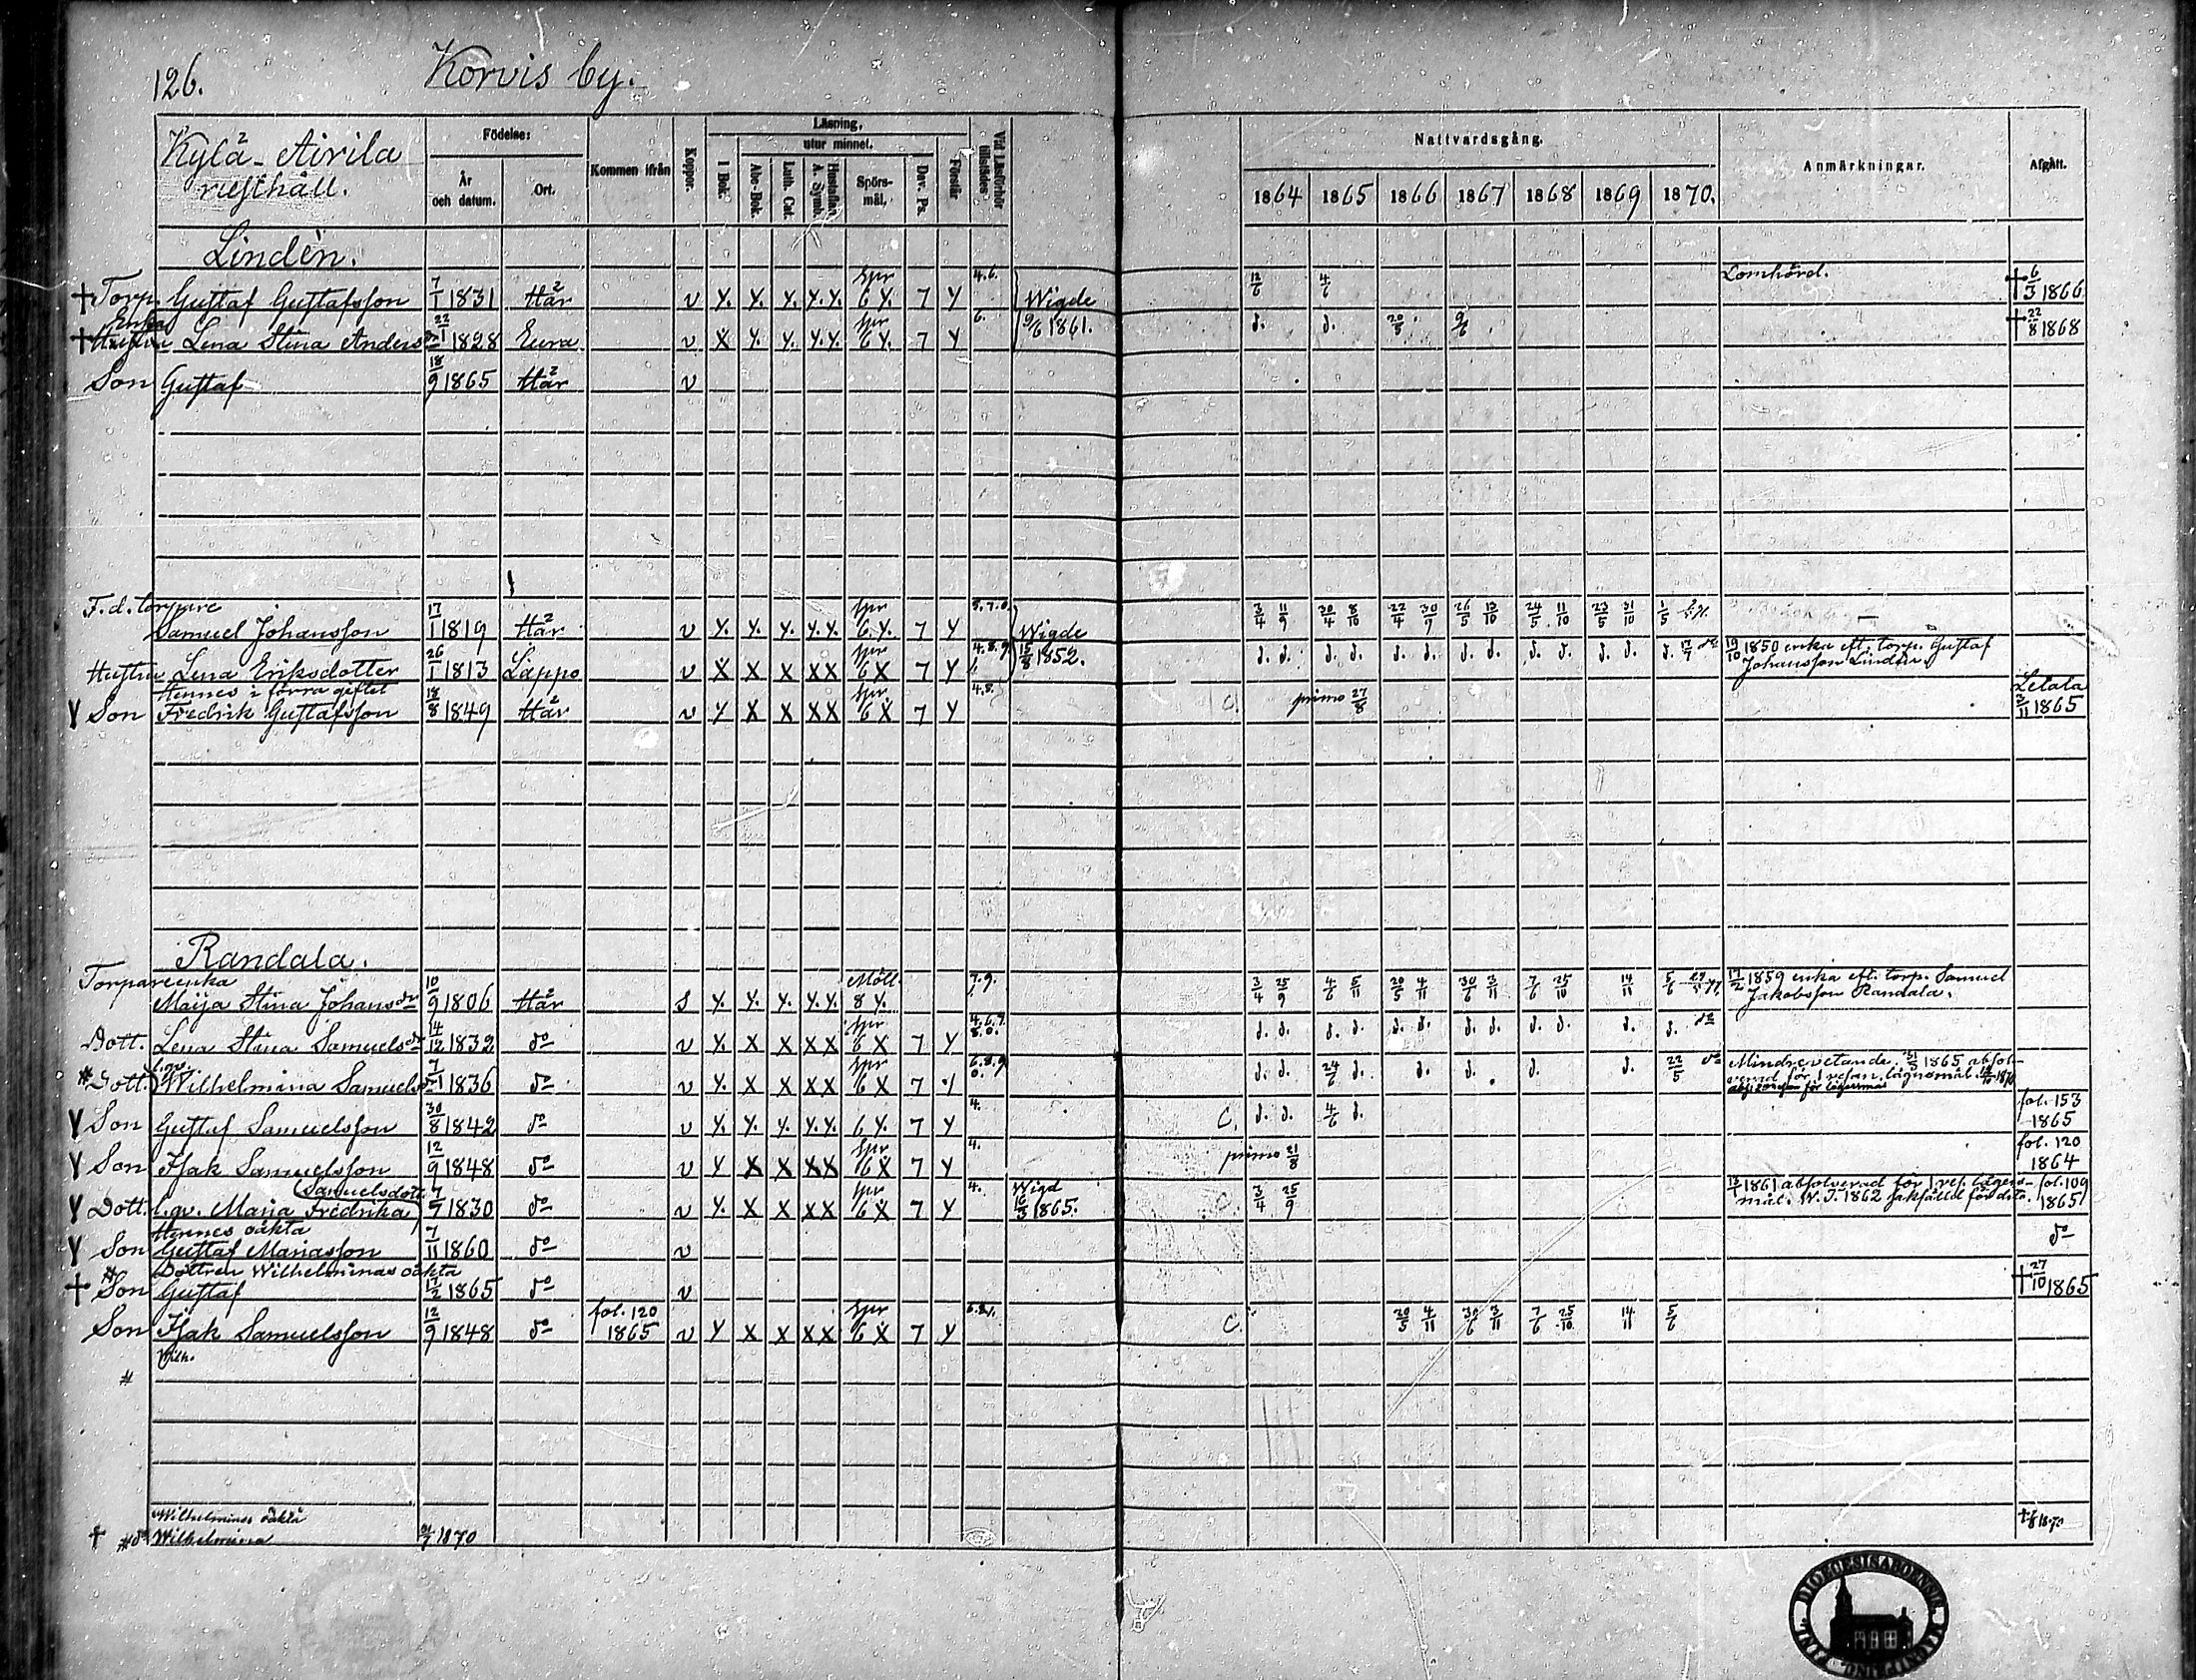 126. Korvis by.
Kylä-Airila
rusthåll.
Födelse:
År och datum.
Ort.
Kommen ifrån
Koppor.
Läsning,
utur minnet.
I Bok.
Abc-Bok.
Luth. Cat.
Hustaflan A. Symb.
Spörsmål.
Dav. Ps.
Förstår
Vid Läsförhör tillstädes
Nattvardsgång.
1864 1865 1866 1867 1868 1869 1870.
Anmärkningar.
Afgått.
Lindén.
† Torp. Gustaf Gustafsson 7/1 1831 Här v Y. Y. Y. Y.Y. Spr 6 Y. 7 Y 4.6. Wigde 12/6 4/6 Lomhörd. † 6/3 1866
Enka
† Hustru Lena Stina Andersdr 22/1 1828 Eura v X Y. Y. Y.Y. Spr 6 Y. 7 Y 6. 9/6 1861. d. d. 20/5 9/6 † 22/8 1868
Son Gustaf 18/9 1865 Här v
F.d. torpare
Samuel Johansson 17/1 1819 Här v Y. Y. Y. Y.Y. Spr 6 Y. 7 Y 5.7.0. Wigde 3/4 11/9 30/4 8/10 22/4 30/9 26/5 13/10 24/5 11/10 23/5 31/10 1/5
Hustru Lena Eriksdotter 26/1 1813 Lappo v X X X XX Spr 6 X 7 Y 4.8.9 1852. d. d. d. d. d. d. d. d. d. d. d. d. d. 17/7 19/10 1850 enka eft. torp. Gustaf
Johansson Lindén.
Hennes i förra giftet
Y Son Fredrik Gustafsson 18/8 1849 Här v Y X X XX Spr 6 X 7 Y 4.8. C. primo 27/8 Letala
2/11 1865
Randala.
Torpareenka
Maija Stina Johansdr 10/9 1806 Här s Y. Y. Y. Y.Y. Mött. 8 Y. 7.9. 3/4 25/9 4/6 5/11 20/5 4/11 30/6 3/11 7/6 25/10 14/11 5/6 17/2 1859 enka eft. torp. Samuel
Jakobsson Randala.
Dott. Lena Stina Samuelsdr 14/12 1832 do v Y. X X XX Spr 6 X 7 Y 4.6.7. 8.0. d. d. d. d. d. d. d. d. d. d. d. d. do
l.qv.
# Dott. Wilhelmina Samuelsdr 7/1 1836 do v Y. X X XX Spr 6 X 7 Y 6.8.9 0. d. d. 24/6 d. d. d. d. d. 22/5 do Mindre vetande. 1865 absolverad för 1 resan lägersmål.
Y Son Gustaf Samuelsson 30/8 1842 do v Y. Y. Y. Y.Y. 6 Y. 7 Y 4. C. d. d. 4/6 d. fol. 153
1865
Y Son Isak Samuelsson 12/9 1848 do v Y X X XX Spr 6 X 7 Y 4. primo 21/8 fol. 120
1864
(Samuelsdott.
Y Dott. l.qv. Maria Fredrika) 7/7 1830 do v Y. X X XX Spr 6 X 7 Y 4. Wigd 16/5 1865. C. 3/4 25/9 1861 absolverad för 1 res. lägersmål. W.T. 1862 sakfälld för dito. fol. 109
1865
Hennes oäkta
Y Son Gustaf Mariasson 7/11 1860 do v do
Dottren Wilhelminas oäkta
† # Son Gustaf 17/2 1865 do v † 27/10 1865
Son Isak Samuelsson 12/9 1848 do fol. 120 1865 v Y X X XX Spr 6 X 7 Y C. 20/5 4/11 30/6 3/11 7/6 25/10 14/11 5/6
Wilh.
#
Wilhelminas oäkta
† # do Wilhelmina 1870 † 1870